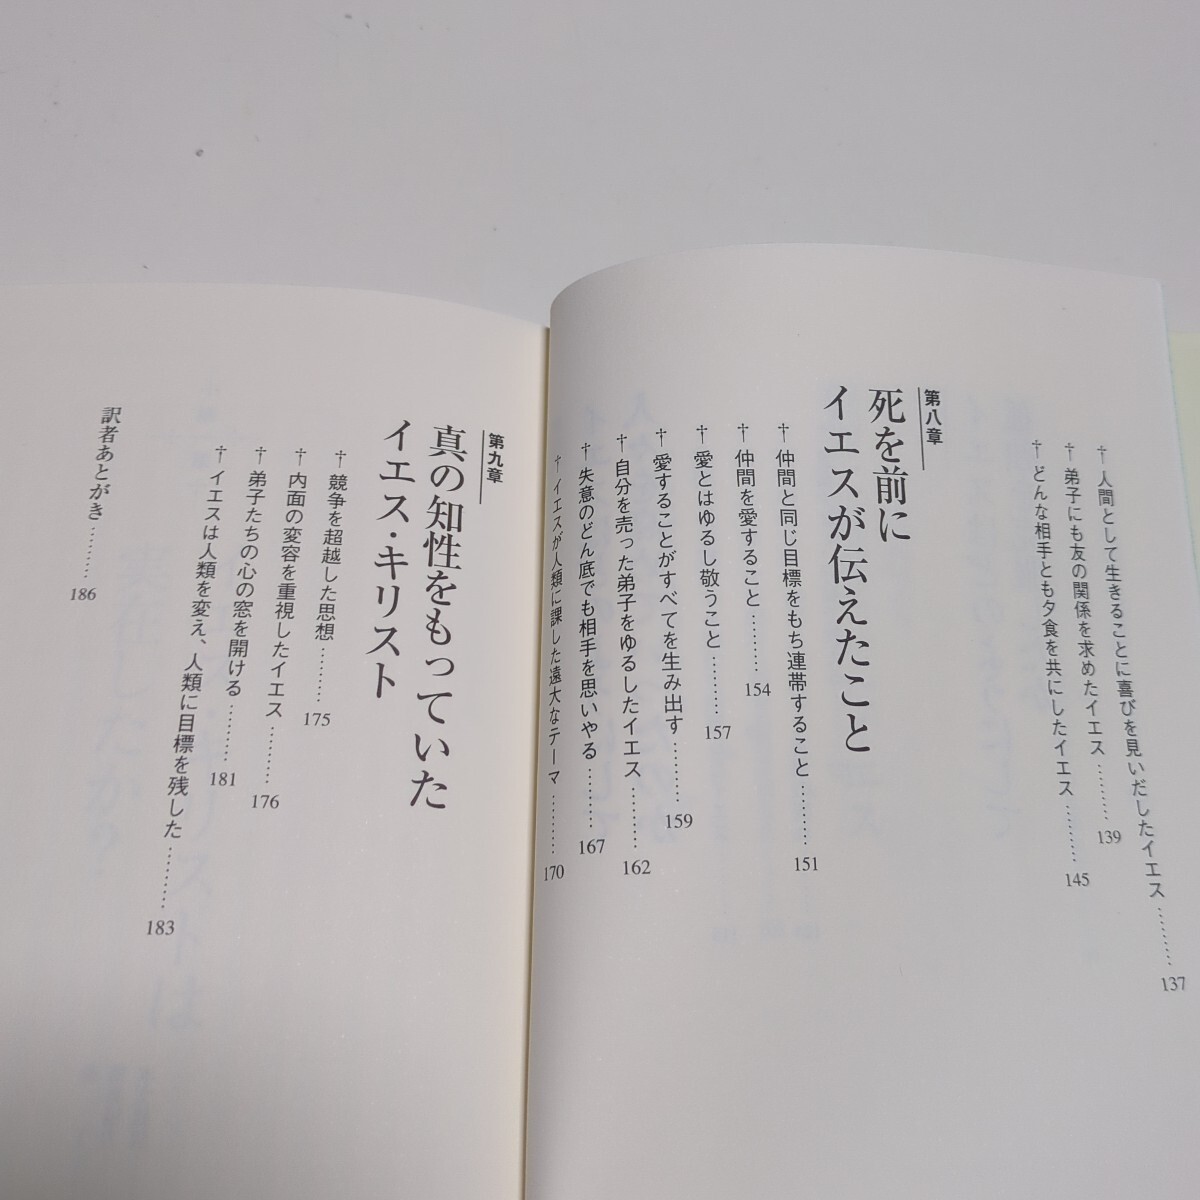 † 人間として生きることに喜びを見いだしたイエス………137
† 弟子にも友の関係を求めたイエス………139
† どんな相手とも夕食を共にしたイエス………145
第八章
死を前に
イエスが伝えたこと
† 仲間と同じ目標をもち連帯すること………151
† 仲間を愛すること………154
† 愛とはゆるし敬うこと………157
† 愛することがすべてを生み出す………159
† 自分を売った弟子をゆるしたイエス………162
† 失意のどん底でも相手を思いやる………167
† イエスが人類に課した遠大なテーマ………170
第九章
真の知性をもっていた
イエス・キリスト
† 競争を超越した思想………175
† 内面の変容を重視したイエス………176
† 弟子たちの心の窓を開ける………181
† イエスは人類を変え、人類に目標を残した………183
訳者あとがき………186